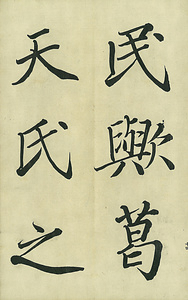 民歟葛
天氏之